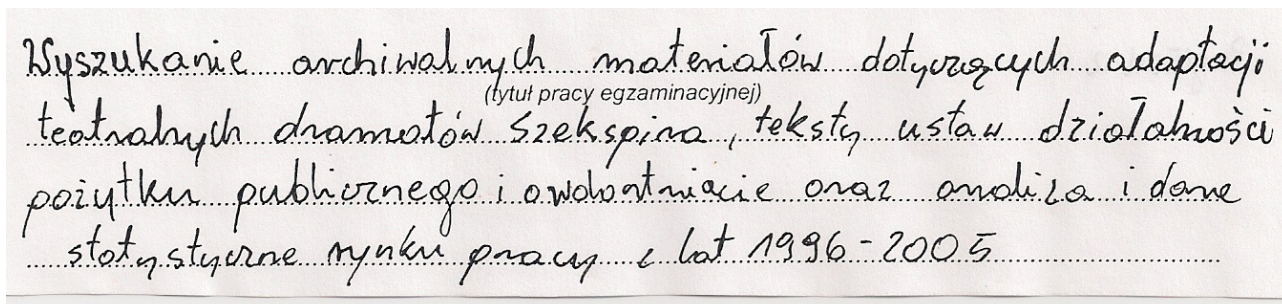 Wyszukanie archiwalnych materiałów dotyczących adaptacji
(tytuł pracy egzaminacyjnej)
teatralnych dramatów Szekspira, teksty ustaw działalności
pożytku publicznego i owolontariacie oraz analiza i dane
statystyczne rynku pracy z lat 1996-2005